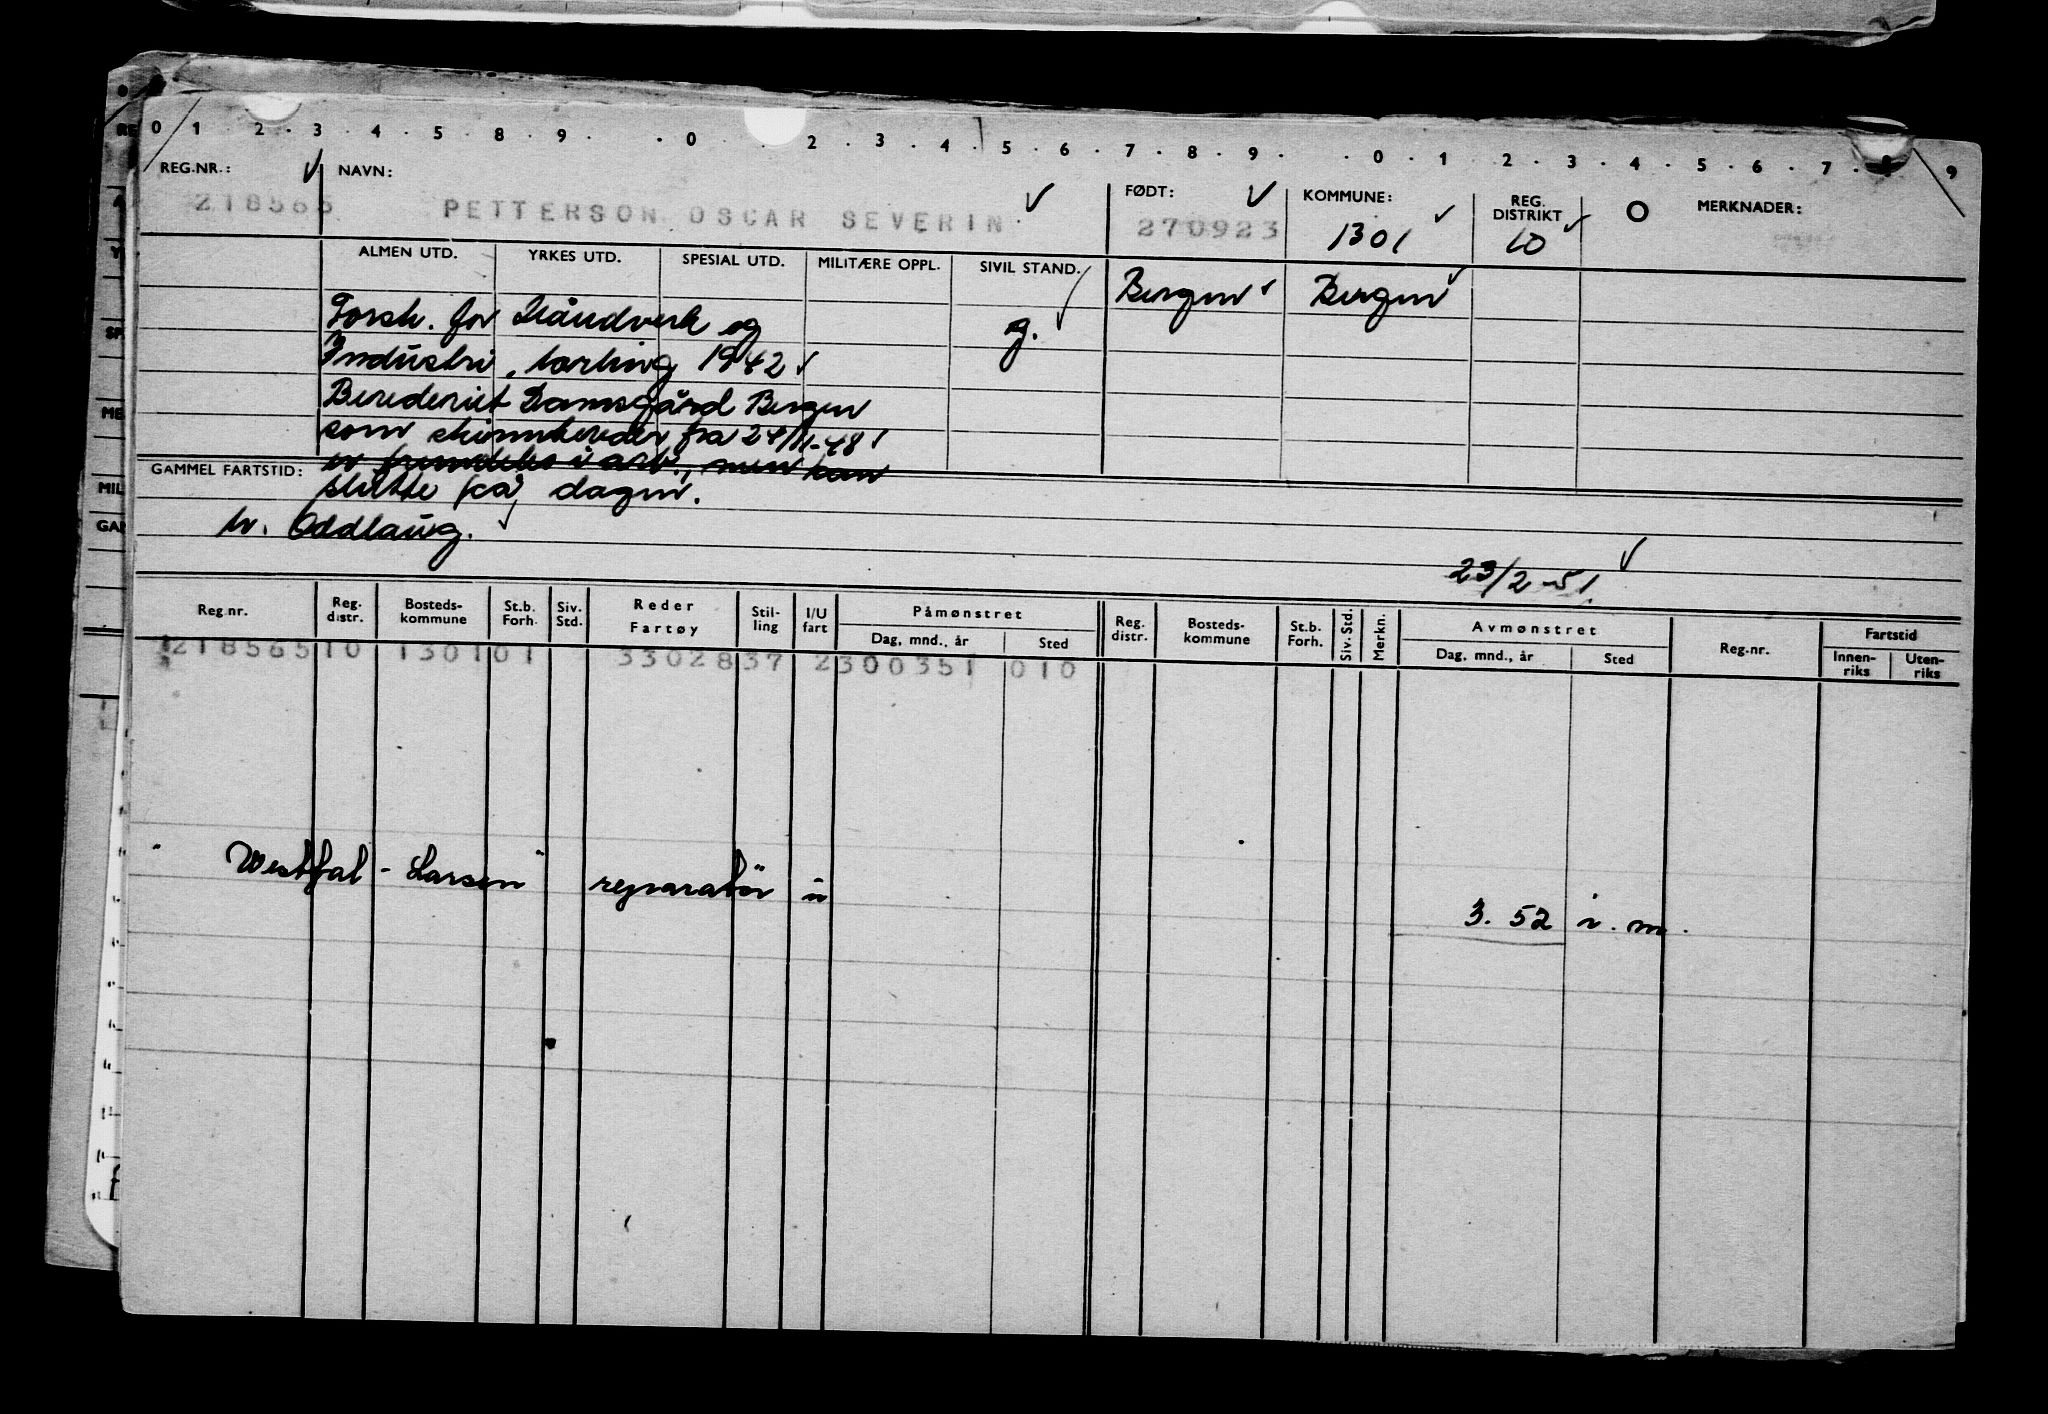 0 1 . 2 . 3 . 4 . 5 . 8 . 9 . . 0 . . 2 . 3 . 4 . 5 . 6 . 7 . 8 . 9 . . 0 . 1 . 2 . 3 . 4 . 5 . 6 . 7 . 8 . 9
REG.NR.: NAVN: FØDT: KOMMUNE: REG. DISTRIKT MERKNADER:
218565 PETTERSON OSCAR SEVERIN 270923 1301 10
ALMEN UTD. YRKES UTD. SPESIAL UTD. MILITÆRE OPPL. SIVIL STAND.
Bergen Bergen
Forsk. for Håndverk og g.
Industri, 1942
Damsgård Bergen
som fra 24/11-48
er fremdeles i arb., men kan
GAMMEL FARTSTID: slutte på dagen.
h. Oddlaug.
23/2-51
Reg.nr. Reg. distr. Bosteds-kommune St.b. Forh. Siv. Std. Reder Fartøy Stil-ling I/U fart Påmønstret Dag, mnd., år Sted Reg. distr. Bosteds-kommune St.b. Forh. Siv. Std. Merkn. Avmønstret Dag, mnd., år Sted Reg.nr. Fartstid Innen-riks Uten-riks
218565 10 1301 01 33028 37 2 300351 010
" Westfal-Larsen " reparatør u 3. 52 i. m.